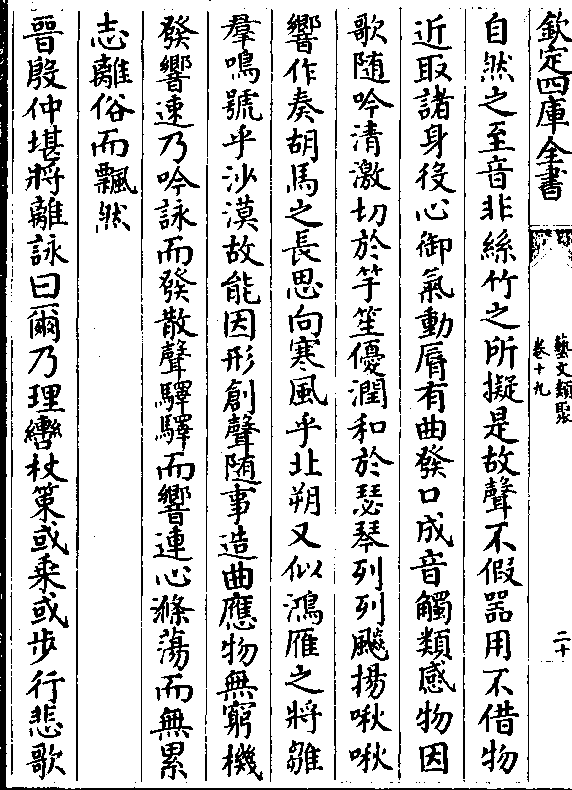 欽定四庫全書
藝文類聚
卷十九
二十
自然之至音非絲竹之所擬是故聲不假器用不借物
近取諸身役心御氣動脣有曲發口成音觸類感物因
歌隨吟清激切於竽笙優潤和於瑟琴列列飈揚啾啾
響作奏胡馬之長思向寒風乎北朔又似鴻雁之將雛
羣鳴號乎沙漠故能因形創聲隨事造曲應物無窮機
發響速乃吟詠而發散聲驛驛而響連心滌蕩而無累
志離俗而飄然
晉殷仲堪將離詠曰爾乃理轡杖策或乗或步行悲歌